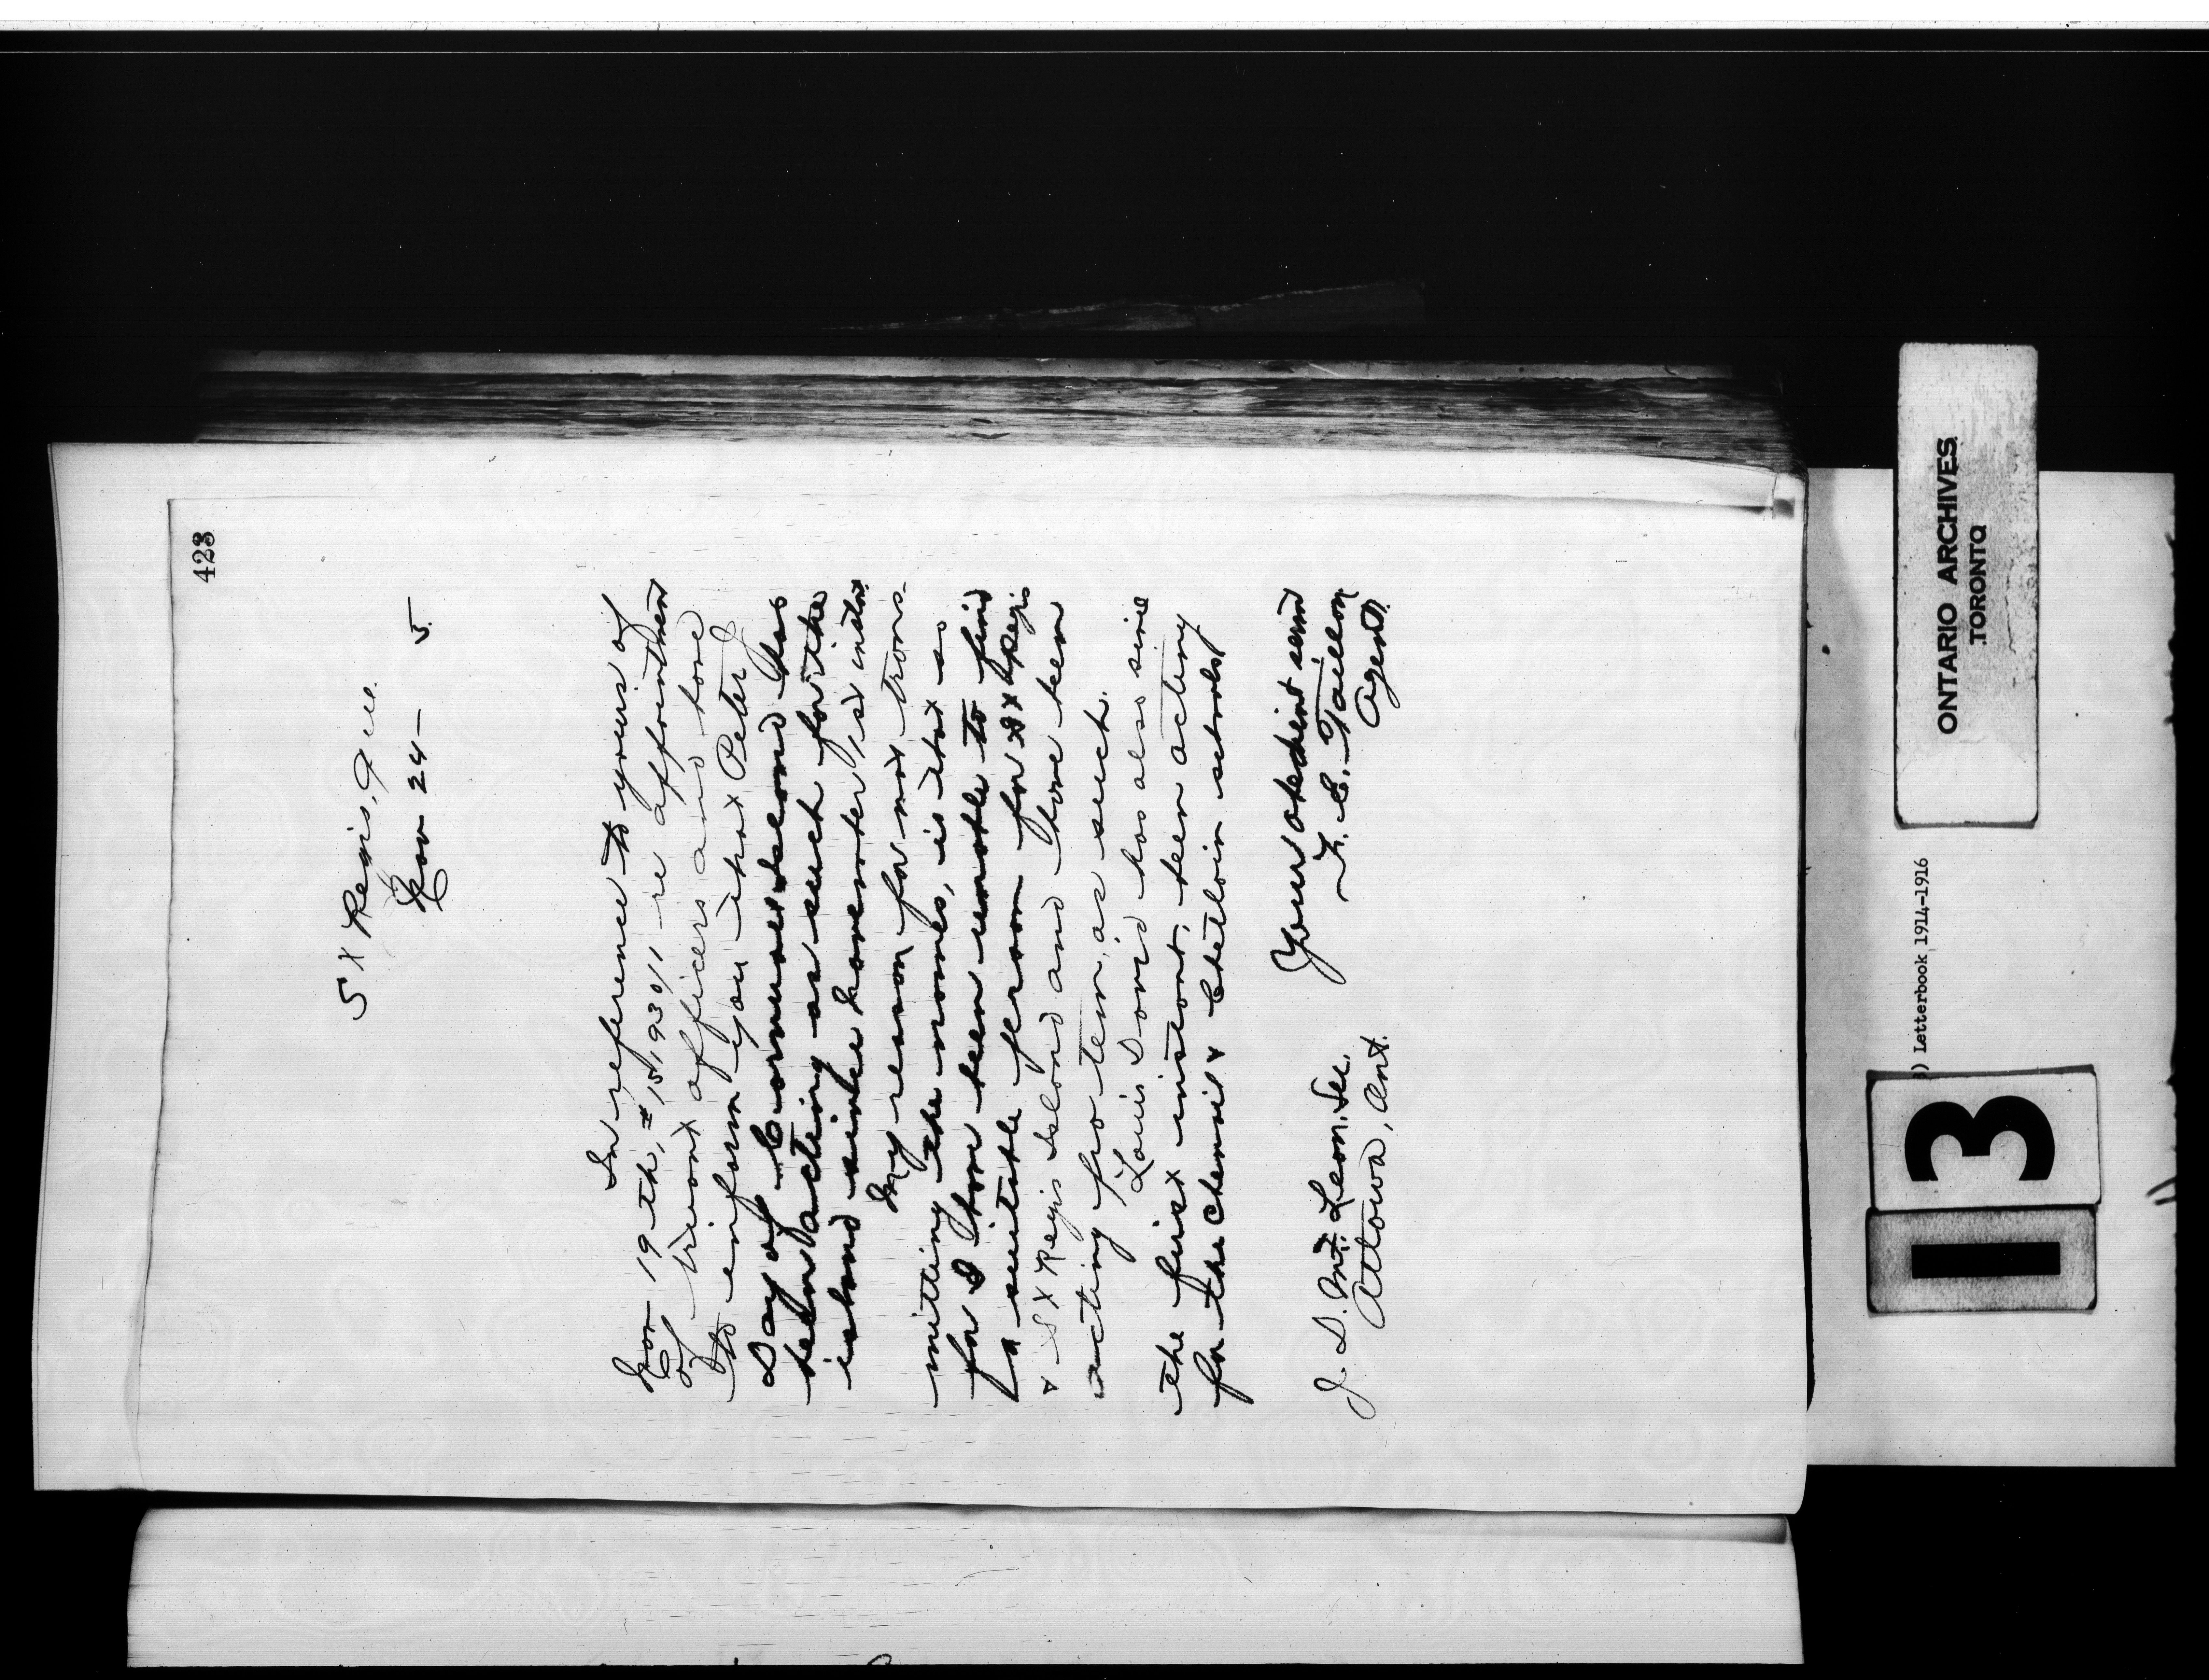 423
St Regis, Que.
Nov 24 - 5.
In reference to yours of
Nov 19th, # 15,930/1 re appointment
of truant officers and have
to inform you that Peter J
Day of Cornwall Island has
been acting as such for the
island since November 1st instant
My reason for not trans-
mitting the names, is that so
far I have been unable to find
a suitable person for St Regis
& St Regis Island and have been
acting pro tem, as such.
Louis David has also since
the first instant, been acting
for the Chenail & schools
Your obedient servt
F. E. Taillon
Agent.
J. D. McLean, Sec.
Ottawa, Ont.
ONTARIO ARCHIVES
TORONTO
) Letterbook 1914-1916
13